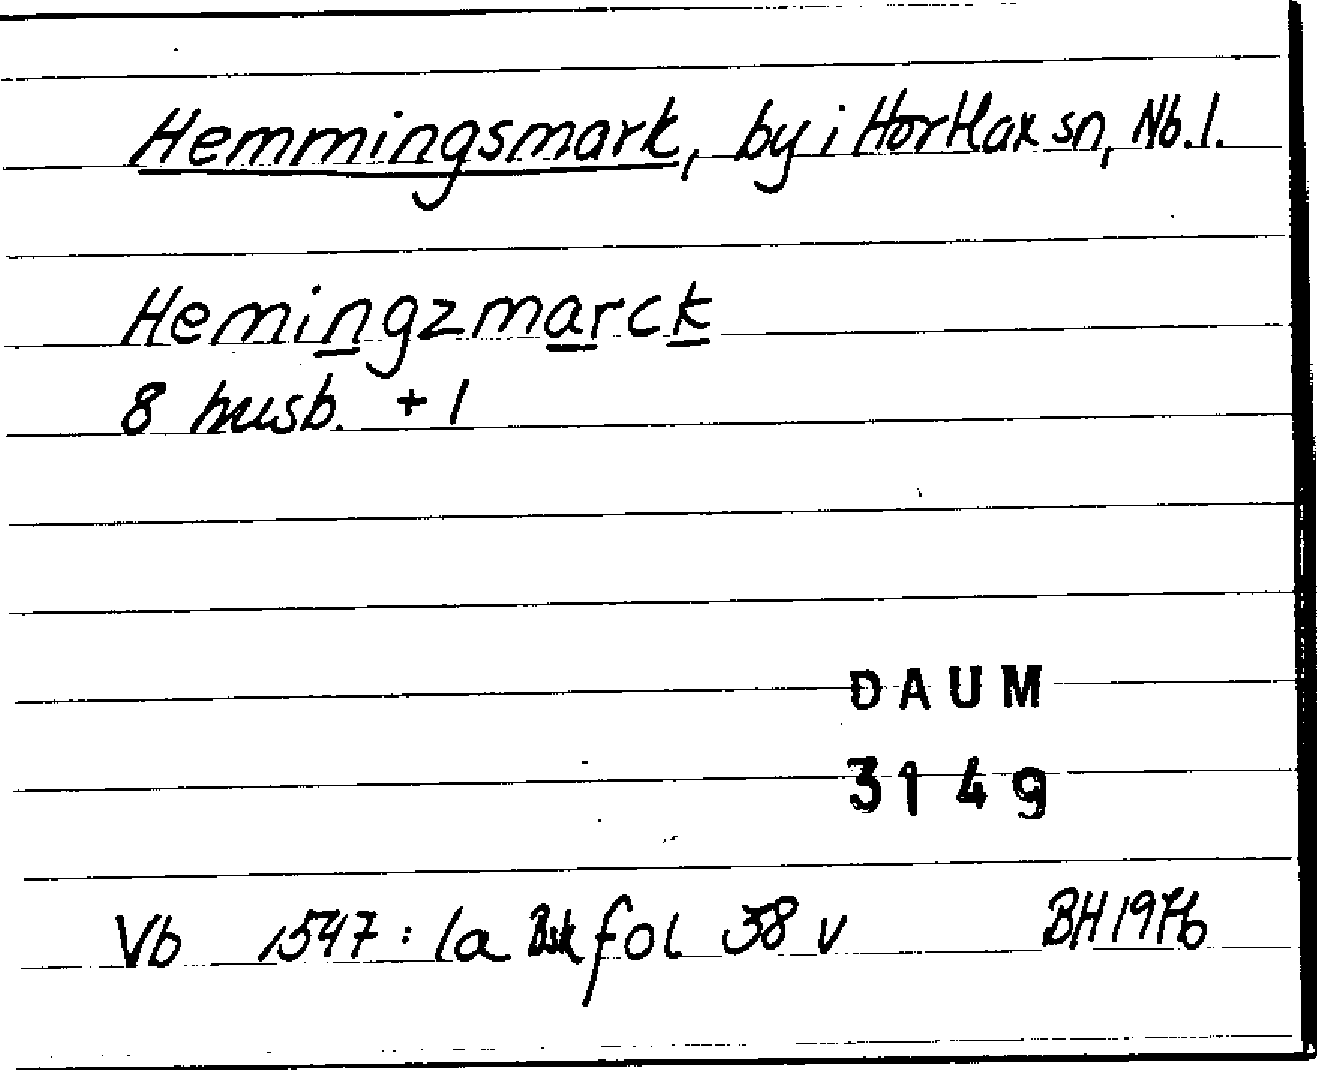 Hemmingsmark, by i Hortlax sn, Nb. l.
Hemingzmarck
8 husb. + 1
DAUM
3149
Vb 1547: 1a Bsk fol 38 v BH 1976